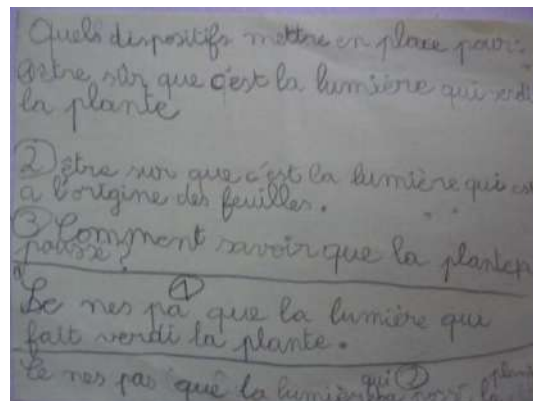 Quels dispositifs mettre en place pour :
① être sûr que c'est la lumière qui verdi
la plante
② être sur que c'est la lumière qui est
a l'origine des feuilles.
③ Comment savoir que la plante
pousse ?
①
Ce nes pa que la lumière qui
fait verdi la plante.
qui ②
Ce nes pas que la lumière la